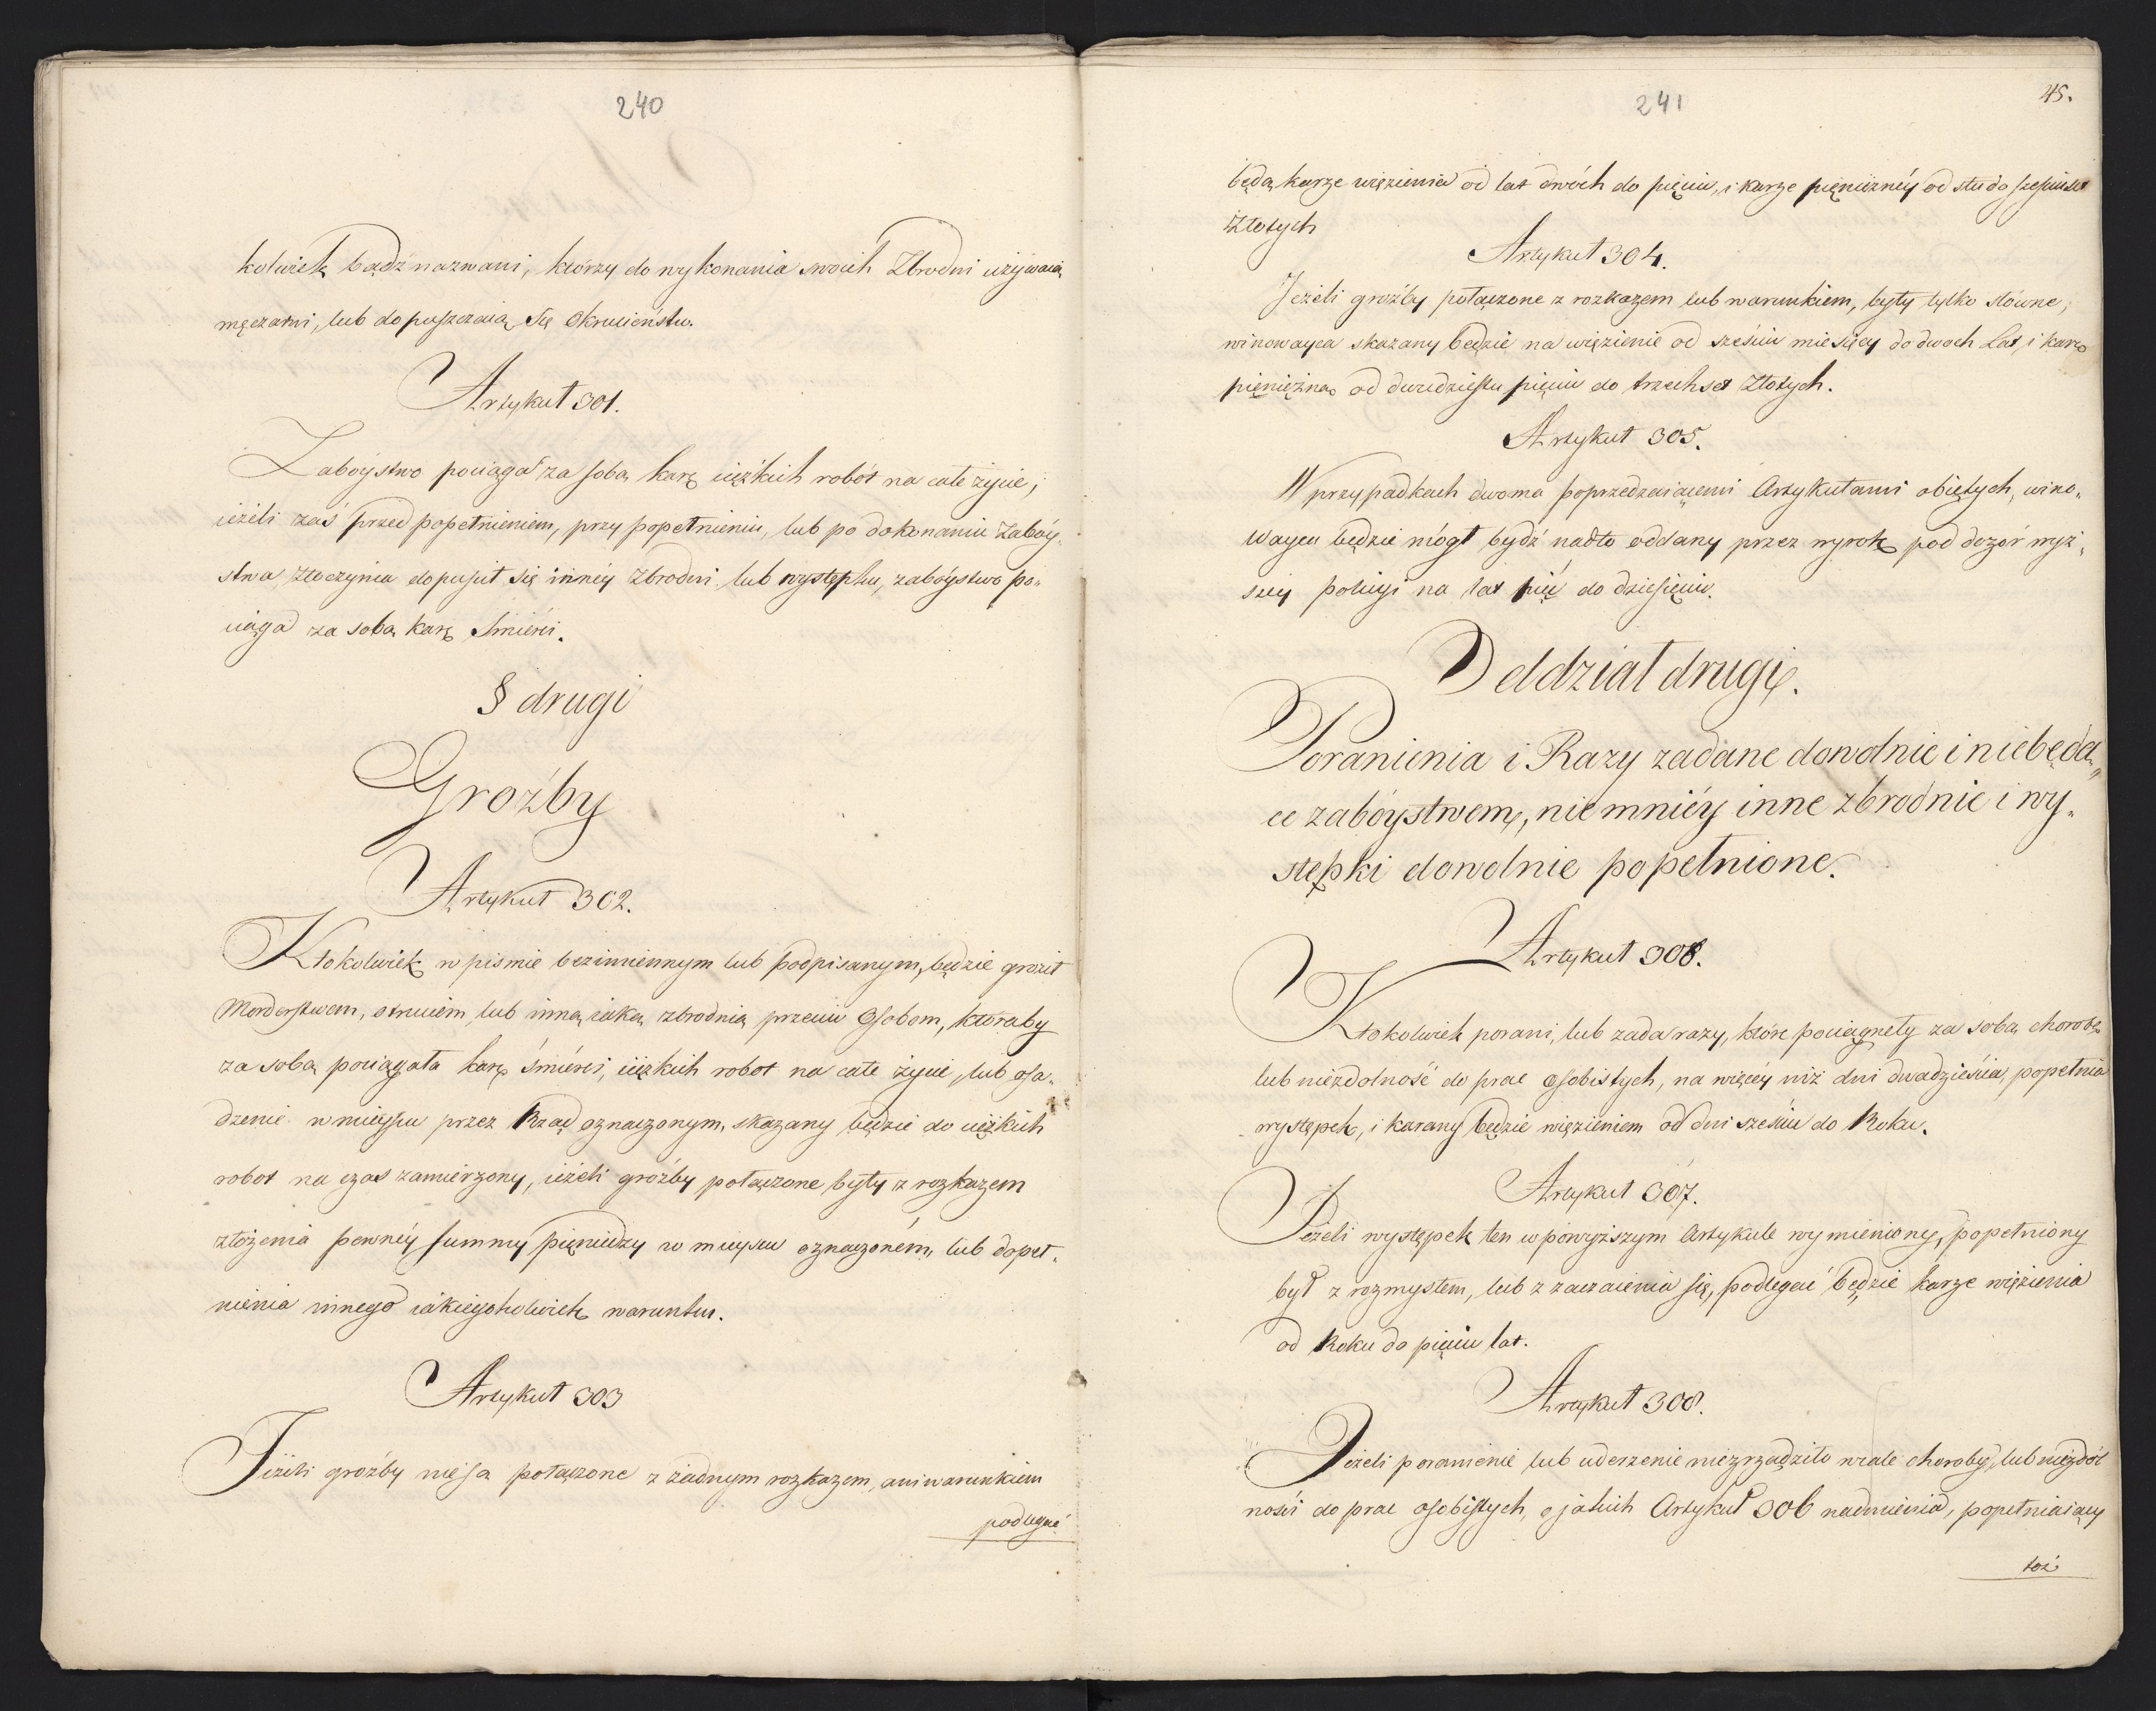 240
kolwiek bądź nazwani, którzy do wykonania swoich Zbrodni używaią
męczarni, lub dopuszczaią się Okrucieństw.
Artykuł 301.
Zabóystwo pociąga za sobą karę ciężkich robót na całe życie;
ieżeli zaś przed popełnieniem, przy popełnieniu, lub po dokonaniu Zabóy„
stwa, złoczyńca dopuścił się innéy Zbrodni lub występku, zabóystwo po„
ciąga za sobą karę Śmierci.
§ drugi
Groźby
Artykuł 302.
Ktokolwiek w piśmie bezimiennym lub podpisanym, będzie groził
Morderstwem, otruciem, lub inną iaką zbrodnią przeciw Osobom, któraby
za sobą pociągała karę śmierci, ciężkich robot na całe życie, lub osa„
dzenie w mieyscu przez Rząd oznaczonym, skazany będzie do ciężkich
robot na czas zamierzony, ieżeli groźby połączone były z rozkazem
złożenia pewnéy summy pieniędzy w mieyscu oznaczoném, lub dopeł„
nienia innego iakiegokolwiek warunku.
Artykuł 303
Ieżeli groźby nie są połączone z żadnym rozkazem, ani warunkiem
podlegać
241
45.
będą karze więzienia od lat dwóch do pięciu, i karze pieniężnéy od stu do sześciuset
Złotych
Artykuł 304.
Jeżeli groźby połączone z rozkazem lub warunkiem, były tylko słowne;
winowayca skazany będzie na więzienie od sześciu miesięcy do dwoch Lat, i karę
pieniężną od dwudziestu pięciu do trzechset Złotych.
Artykuł 305.
W przypadkach dwoma poprzedzaiącemi Artykułami obiętych, wino„
wayca będzie mógł bydź nadto oddany przez wyrok pod dozór wyż„
széy policyi na lat pięć do dziesięciu.
Oddział drugi.
Poranienia i Razy zadane dowolnie i niebędą„
ce zabóystwem, niemniéy inne zbrodnie i wy„
stępki dowolnie popełnione.
Artykuł 306.
Ktokolwiek porani, lub zada razy, które pociągnęły za sobą chorobę
lub niezdolność do prac Osobistych, na więcéy niż dni dwadzieścia, popełnia
występek, i karany będzie więzieniem od dni sześciu do Roku.
Artykuł 307.
Ieżeli występek ten w powyższym Artykule wymieniony, popełniony
był z rozmysłem, lub z zaczaienia się, podlegać będzie karze więzienia
od Roku do pięciu lat.
Artykuł 308.
Ieżeli poranienie lub uderzenie niezrządziło wcale choroby, lub niezdol
ności do prac osobistych, o jakich Artykuł 306 nadmienia, popełniaiący
toż